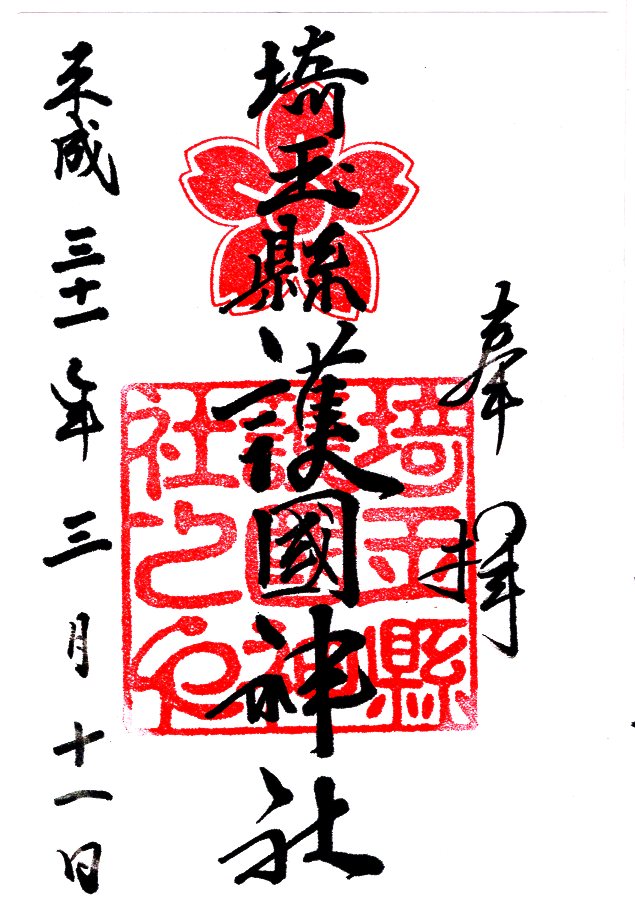 奉拝
埼玉縣護國神社
埼玉縣
護國神
社之印
平成三十一年三月十一日